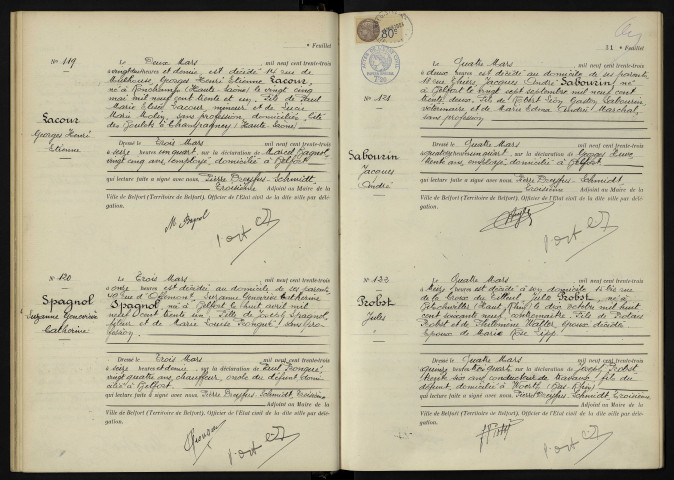 " Feuillet
N° 119
Lacour
Georges Henri
Etienne
Le Deux Mars , mil neuf cent trente-trois
à vingt heures et demie, est décédé 14 rue de
Mulhouse, Georges Henri Etienne Lacour,
né à Ronchamp (Haute-Saône) le vingt cinq
mai mil neuf cent trente et un, fils de Paul
Marie Elisée Lacour, mineur et de Lucie
Marie sans profession, domiciliés, Cité
des à Champagney (Haute Saône)
Dressé le Trois Mars , mil neuf cent trente-trois
à seize heures un quart, sur la déclaration de Marcel Bagnol
vingt cinq ans, employé, domicilié à Belfort
qui lecture faite a signé avec nous, Pierre Dreyfus-Schmidt,
Troisième Adjoint au Maire de la
Ville de Belfort (Territoire de Belfort), Officier de l'Etat civil de la dite ville par délé-
gation.
N° 120
Spagnol
Suzanne Geneviève
Catherine
Le Trois Mars , mil neuf cent trente-trois
à onze heures est décédée au domicile de ses parents,
rue d'Offemont, Suzanne Geneviève Catherine
Spagnol, née à Belfort le huit avril mil
neuf cent trente un, fille de Joseph Spagnol,
et de Marie Louise sans pro-
fession.
Dressé le Trois Mars , mil neuf cent trente-trois
à seize heures et demie, sur la déclaration de Paul
vingt quatre ans, chauffeur, oncle du défunt, domi-
cilié à Belfort,
qui lecture faite a signé avec nous, Pierre Dreyfus-Schmidt, Troisième
Adjoint au Maire de la
Ville de Belfort (Territoire de Belfort), Officier de l'Etat civil de la dite ville par délé-
gation.
31 " Feuillet
N° 121
Sabourin
Jacques
André
Le Quatre Mars , mil neuf cent trente-trois
à deux heures est décédé au domicile de ses parents,
rue Thiers, Jacques André Sabourin, né
à Belfort le vingt sept septembre mil neuf cent
trente deux, fils de Robert Léon Gaston Sabourin
vétérinaire et de Marie Edmée Andrée Marchal,
sans profession
Dressé le Quatre Mars , mil neuf cent trente-trois
à quatorze heures un quart, sur la déclaration de Georges
trente ans, employé domicilié à Belfort
qui lecture faite a signé avec nous, Pierre Dreyfus-Schmidt,
Troisième Adjoint au Maire de la
Ville de Belfort (Territoire de Belfort), Officier de l'Etat civil de la dite ville par délé-
gation.
Probst
Jules
Le Quatre Mars , mil neuf cent trente-trois
à heures est décédé à son domicile 15 bis rue
de la Croix du Tilleul, Jules Probst, né à
(Haut-Rhin) le dix octobre mil huit
cent soixante neuf, fils de
Probst et de Philomène Walter, époux décédés
Epoux de Marie Rose
Dressé le Quatre Mars , mil neuf cent trente-trois
à heures trois quarts, sur la déclaration de Joseph Probst,
trente ans, conducteur de travaux, fils du
défunt, domicilié à Woerth (Bas-Rhin)
qui lecture faite a signé avec nous, Pierre Dreyfus-Schmidt, Troisième
Adjoint au Maire de la
Ville de Belfort (Territoire de Belfort), Officier de l'Etat civil de la dite ville par délé-
gation.